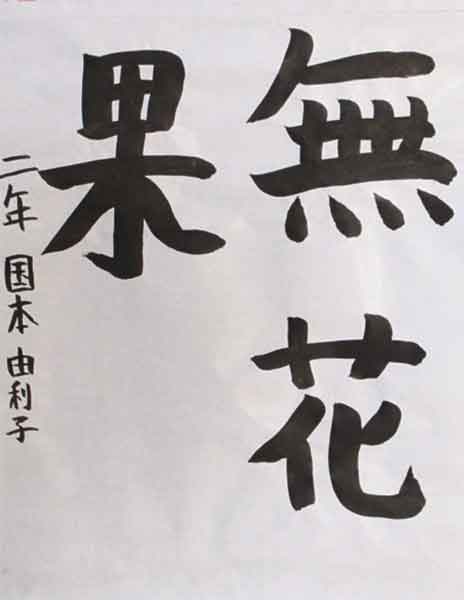 無花
果
二年 国本 由利子